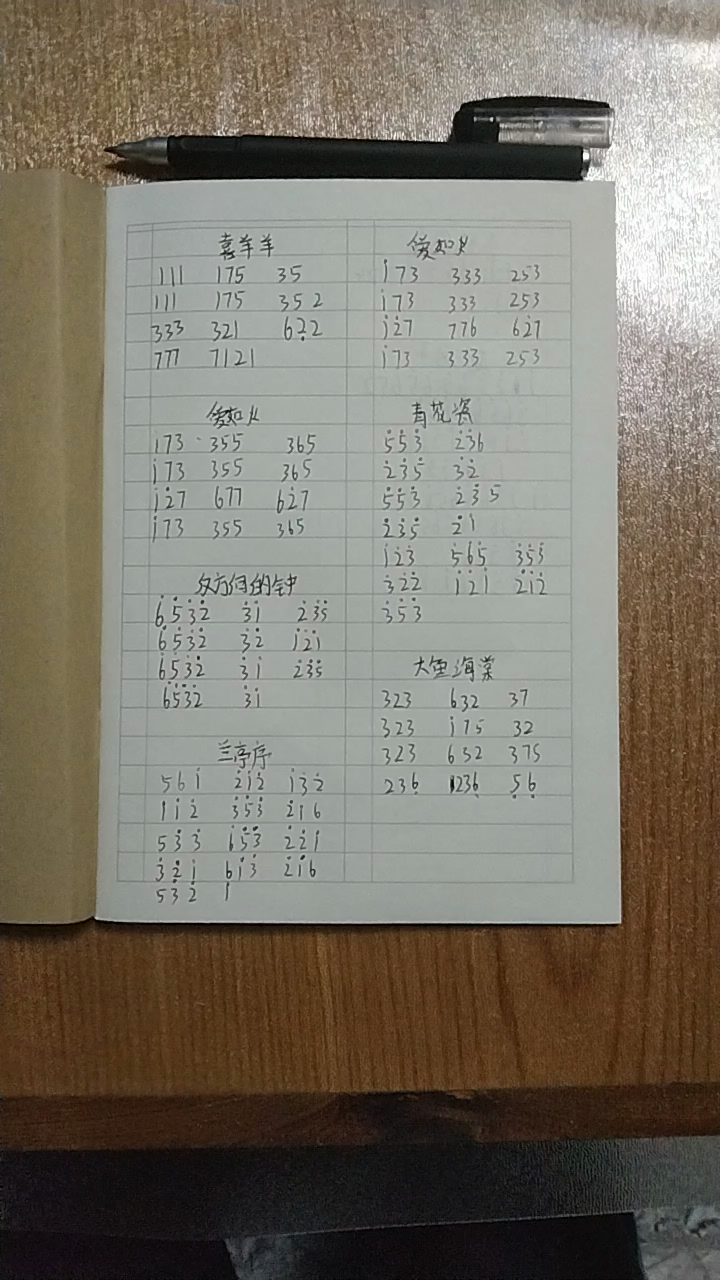 喜羊羊
111 175 35
111 175 352
333 321 62̣2
777 7121
爱如火
i̇73 355 365
i̇73 355 365
i̇2̇7 677 62̇7
i̇73 355 365
反方向的钟
6̇5̇3̇2̇ 3̇i̇ 2̇3̇5̇
6̇5̇3̇2̇ 3̇2̇ i̇2̇i̇
6̇5̇3̇2̇ 3̇i̇ 2̇3̇5̇
6̇5̇3̇2̇ 3̇i̇
兰亭序
56i̇ 2̇i̇2̇ i̇3̇2̇
1i̇2̇ 3̇5̇3̇ 2̇i̇6
53̇3̇ 65̇3̇ 2̇2̇1
3̇2̇i̇ 6i̇3̇ 2̇i̇6
53̇2̇ 1
爱如火
i̇73 333 253
i̇73 333 253
i̇2̇7 776 62̇7
i̇73 333 253
青花瓷
5̇5̇3̇ 2̇3̇6
2̇3̇5̇ 3̇2̇
5̇5̇3̇ 2̇3̇5̇
2̇3̇5̇ 2̇1
i̇2̇3̇ 5̇6̇5̇ 3̇5̇3̇
3̇2̇2̇ i̇2̇i̇ 2̇i̇2̇
3̇5̇3̇
大鱼海棠
323 632 37
323 i̇75 32
323 652 375
236̣ 1236̣ 5̣6̣